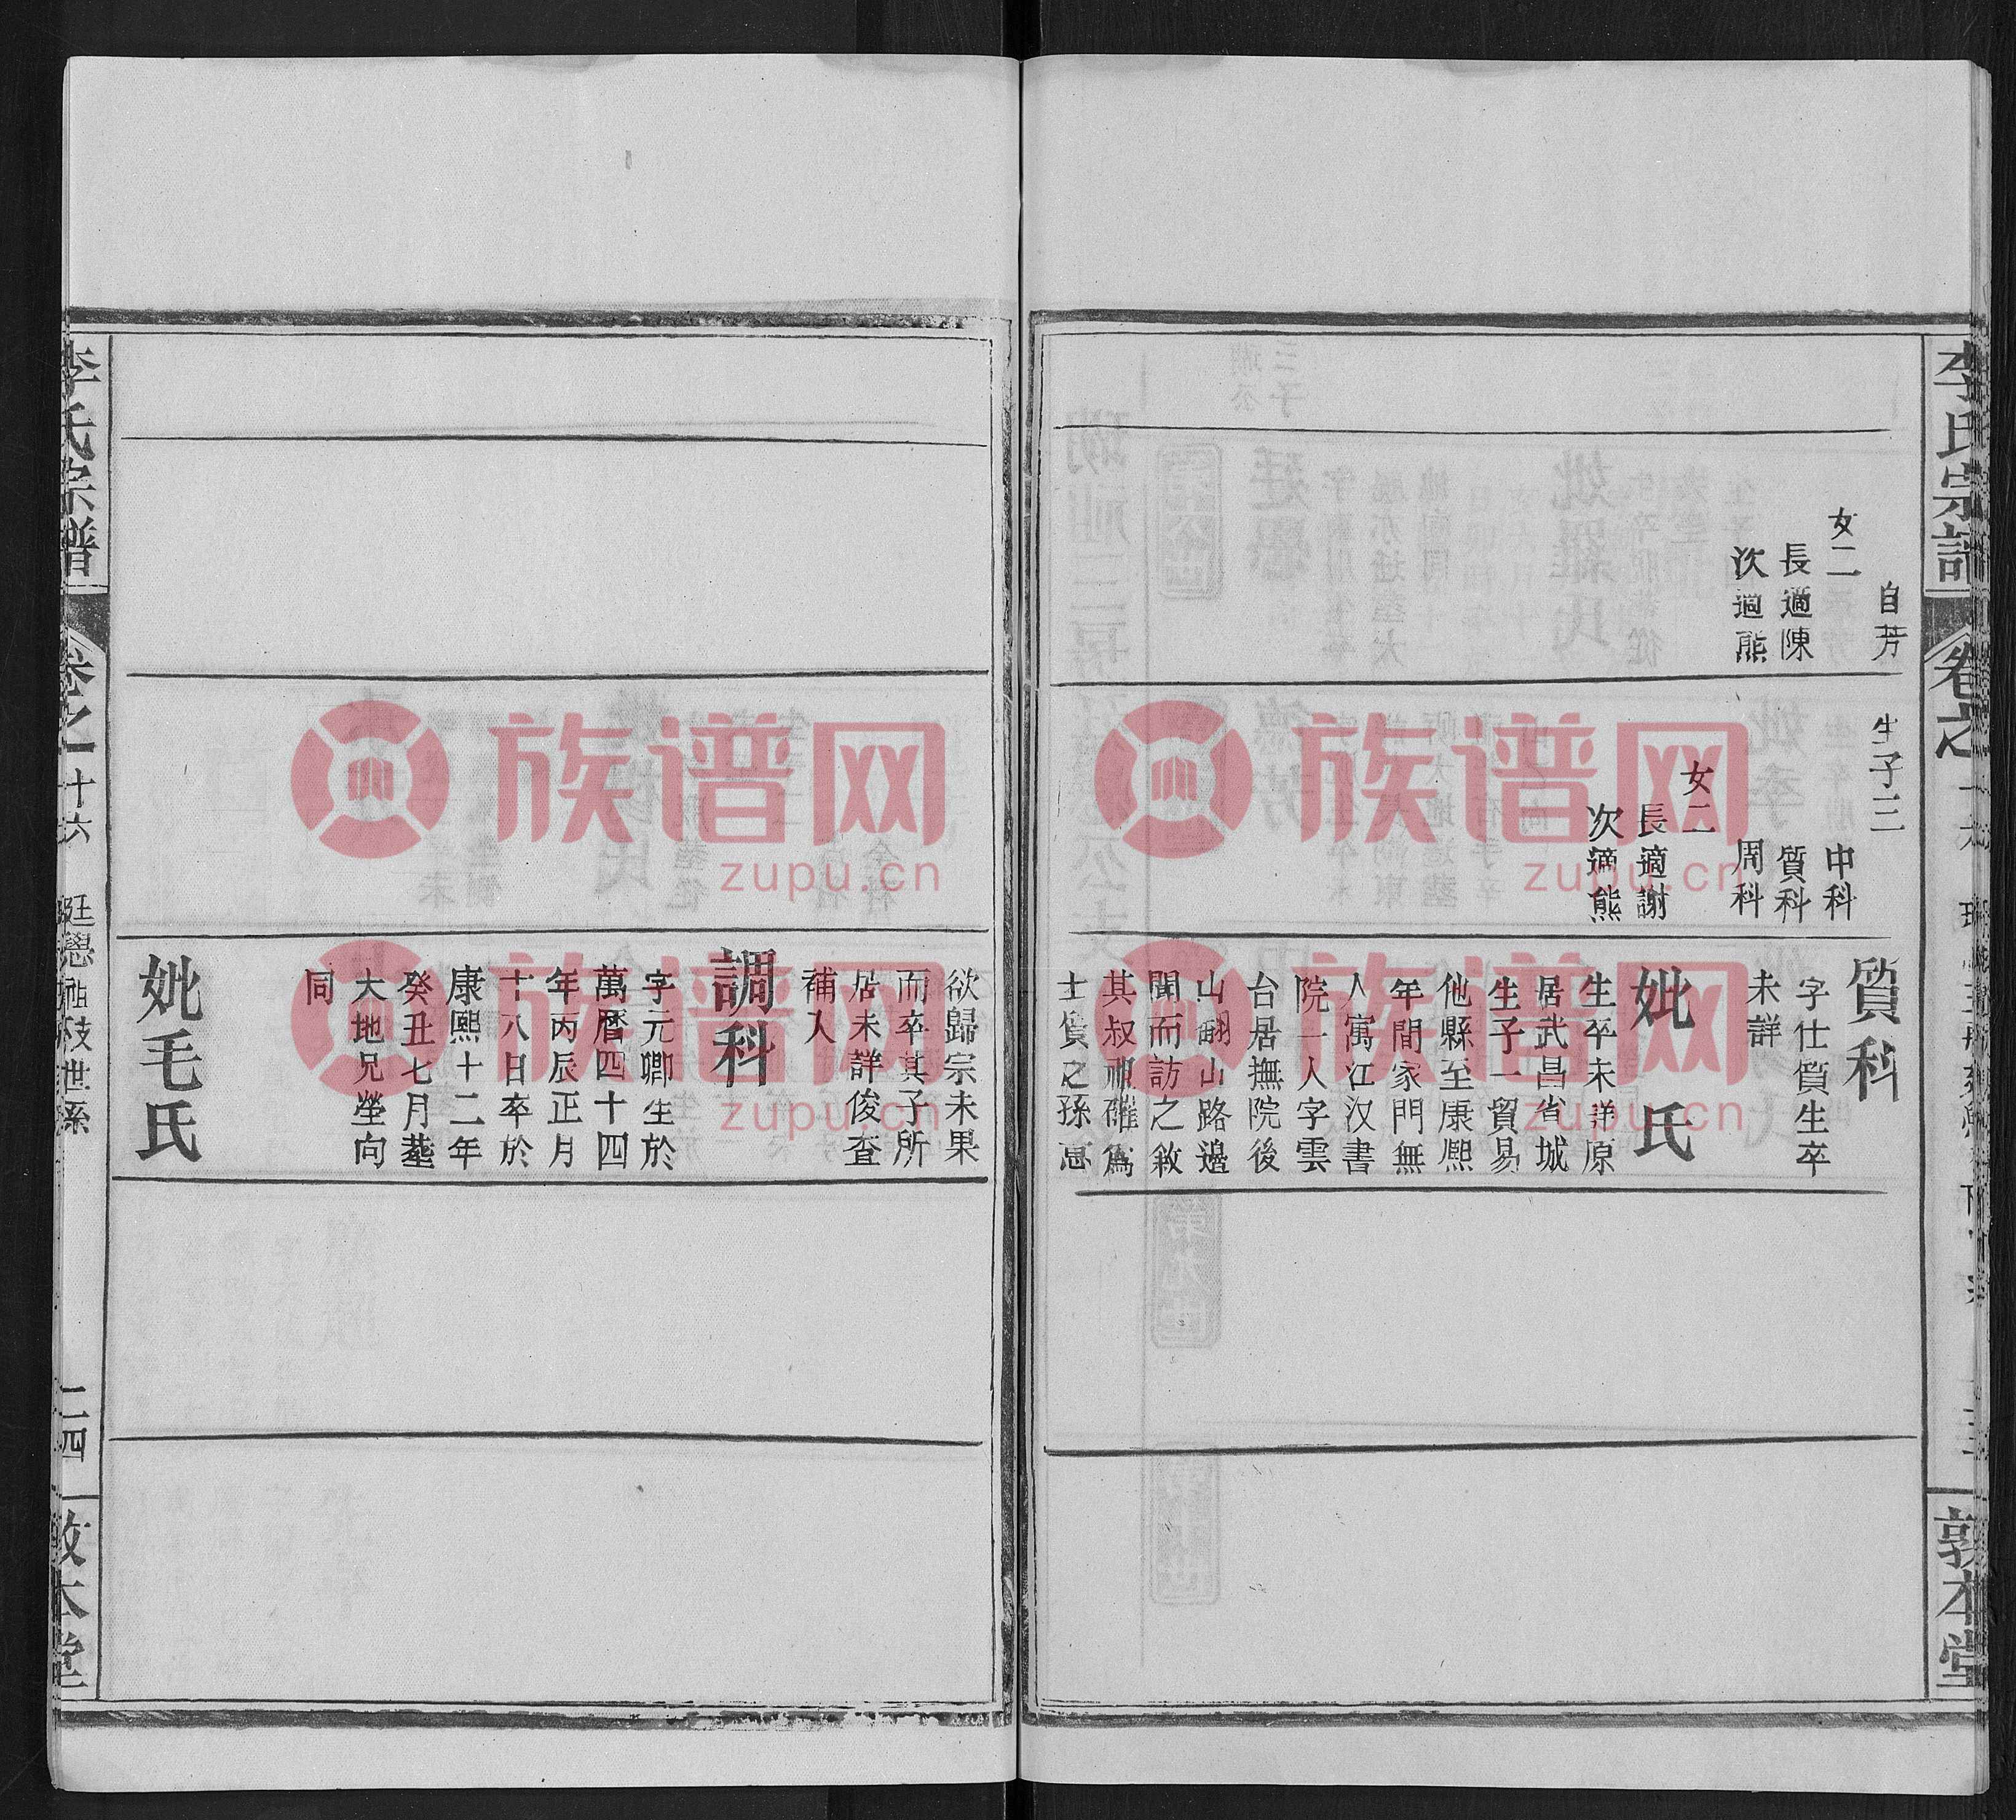 李氏宗譜
卷之
敦本堂
自芳
女二
長適陳
次適熊
生子三
中科
質科
周科
女二
長適謝
次適熊
質科
字仕質生卒
未詳
妣 氏
生卒未詳原
居武昌省城
生子一貿易
他縣至康熙
年間家門無
人寓江汉書
院一人字雲
台居撫院後
山翩山路邊
聞而訪之敘
其叔祖確爲
士質之孫
欲歸宗未果
而卒其子所
居未詳俊查
補入
調科
字元卿生於
萬曆四十四
年丙辰正月
十八日卒於
康熙十二年
癸丑七月塟
大地兄塋向
同
妣毛氏
李氏宗譜
卷之十六
廷戀祖枝世系
二四
敦本堂
族谱网
zupu.cn
族谱网
zupu.cn
族谱网
zupu.cn
族谱网
zupu.cn